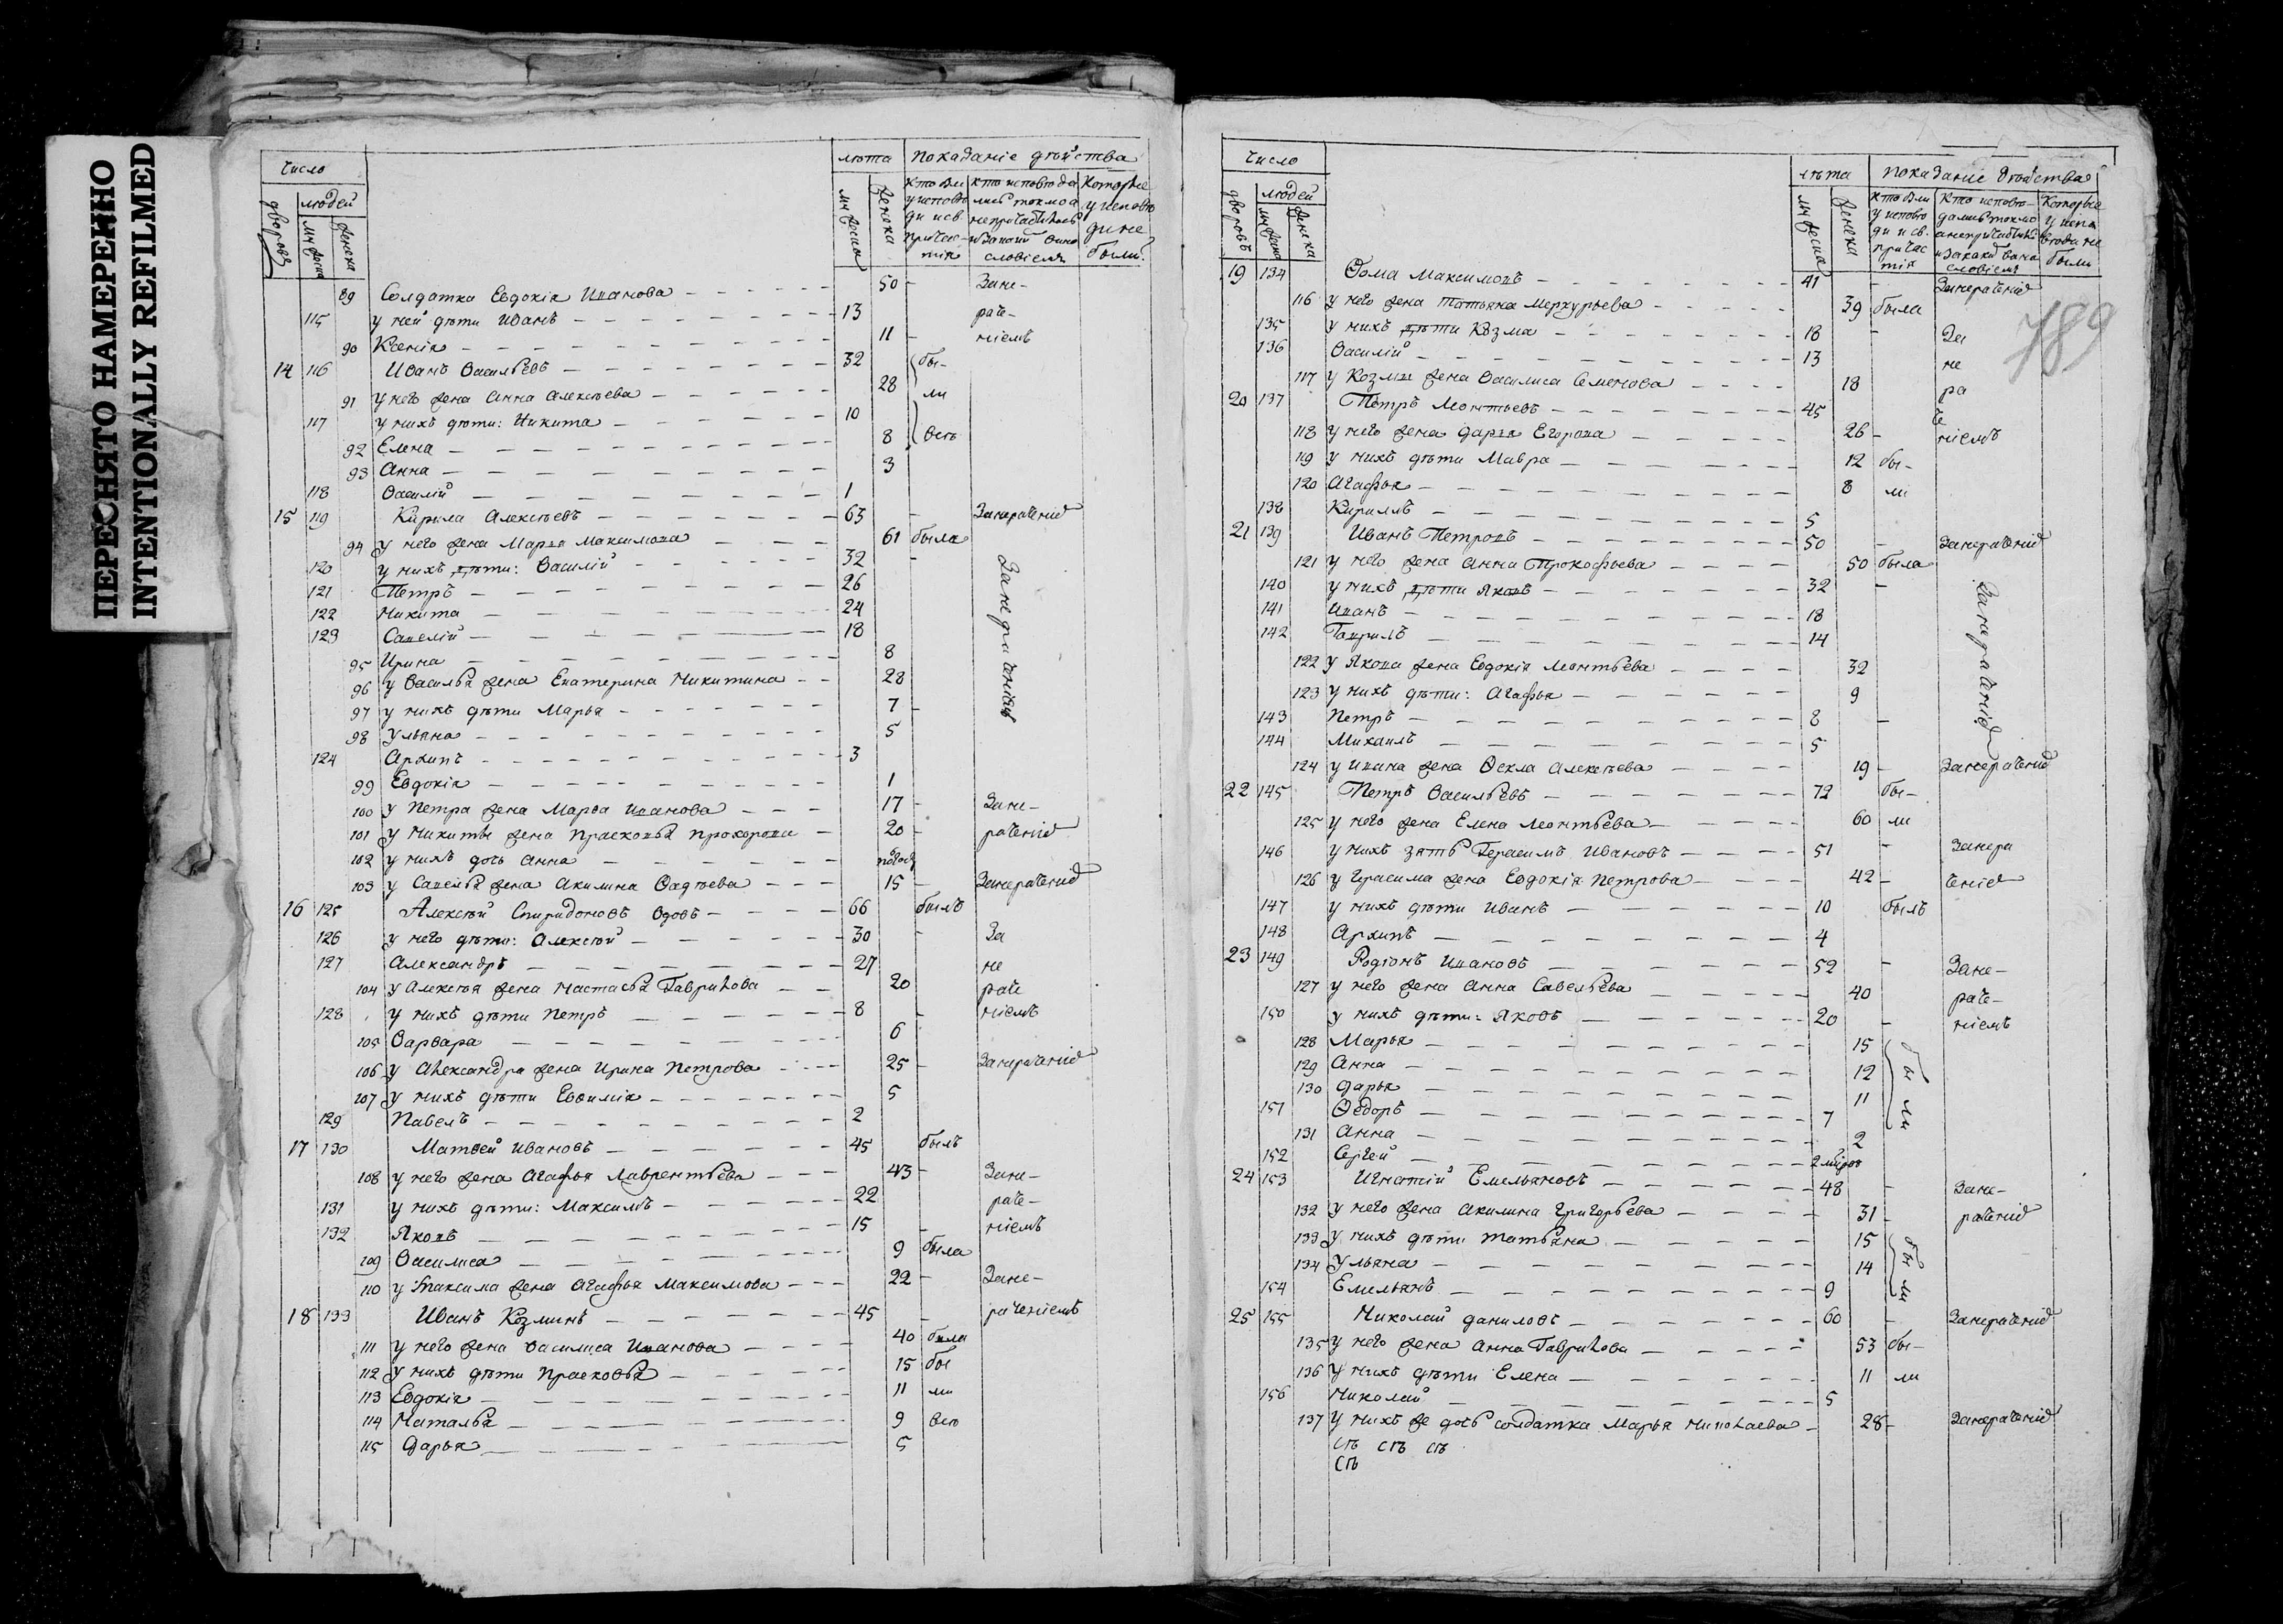 ПЕРЕСНЯТО НАМЕРЕННО
INTENTIONALLY REFILMED
число
лѣта показаніе дѣйства
людей
дворовъ
мужеска
женска
мужеска
женска
кто были у исповѣди и св. причастія
кто исповѣдались токмо а не причастились и за какой виной
которые у исповѣди не были
89 Солдатка Евдокія Иванова 50 - Зане-
115 у ней дѣти Иванъ 13 раче-
90 Ксенія 11 - ніемъ
14 116 Иванъ Васильевъ 32 бы-
91 у него жена Анна Алексѣева 28 ли
117 у нихъ дѣти: Никита 10
92 Елена 8 вси
93 Анна 3
118 Василій 1
15 119 Кирила Алексѣевъ 63 - Занераченіе
94 у него жена Марѳа Максимова 61 была
120 у нихъ дѣти: Василій 32 -
121 Петръ 26
122 Никита 24
123 Савелій 18
Занераченіемъ
95 Ирина 8
96 у Василья жена Екатерина Никитина 28
97 у нихъ дѣти Марья 7 -
98 Ульяна 5
124 Архипъ 3
99 Евдокія 1
100 у Петра жена Марѳа Иванова 17 - Зане-
101 у Никиты жена Прасковья Прохорова 20 - раченіе
102 у нихъ дочь Анна
103 у Савелья жена Акилина Ѳадѣева 15 - Занераченіе
16 125 Алексѣй Спиридоновъ вдовъ 66 былъ
126 у него дѣти: Алексѣй 30 - За
127 Александръ 27 не
104 у Алексѣя жена Настасья Гаврилова 20 раче
128 у нихъ дѣти Петръ 8 - ніемъ
105 Варвара 6
106 у Александра жена Ирина Петрова 25 - Занераченіе
107 у нихъ дѣти Евѳимія 5
129 Павелъ 2
17 130 Матвей Ивановъ 45 былъ
108 у него жена Агафья Лаврентьева 43 - Зане-
131 у нихъ дѣти: Максимъ 22 раче-
132 Яковъ 15 - ніемъ
109 Василиса 9 была
110 у Максима жена Агафья Максимова 22 - Зане-
18 133 Иванъ Козминъ 45 - раченіемъ
111 у него жена Василиса Иванова 40 была
112 у нихъ дѣти Прасковья 15 бы
113 Евдокія 11 ли
114 Наталья 9 вси
115 Дарья 5
789
число
лѣта показаніе дѣйства
людей
дворовъ
мужеска
женска
мужеска
женска
кто были у исповѣди и св. причастія
кто исповѣдались токмо
которые у исповѣди не были
19 134 Ѳома Максимовъ 41 - Занераченіе
116 у него жена Татьяна Меркурьева 39 была
135 у нихъ дѣти Козма 18 - За
136 Василій 13 не
117 у Козмы жена Василиса Семенова 18 ра
20 137 Петръ Леонтьевъ 45 че
118 у него жена Дарья Егорова 26 - ніемъ
119 у нихъ дѣти Мавра 12 бы-
120 Агафья 8 ли
138 Кирилъ 5
21 139 Иванъ Петровъ 50 - Занераченіе
121 у него жена Анна Прокофьева 50 была
140 у нихъ дѣти Яковъ 32 -
141 Иванъ 18
142 Гаврилъ 14
Занераченіе
122 у Якова жена Евдокія Леонтьева 32
123 у нихъ дѣти: Агафья 9
143 Петръ 8 -
144 Михаилъ 5
124 у Ивана жена Ѳекла Алексѣева 19 - Занераченіе
22 145 Петръ Васильевъ 72 бы-
125 у него жена Елена Леонтьева 60 ли
146 у нихъ зять Герасимъ Ивановъ 51 - Занера
126 у Герасима жена Евдокія Петрова 42 - ченіе
147 у нихъ дѣти Иванъ 10 былъ
148 Архипъ 4
23 149 Родіонъ Ивановъ 52 - Зане-
127 у него жена Анна Савельева 40 раче-
150 у нихъ дѣти: Яковъ 20 - ніемъ
128 Марья 15
129 Анна 12 бы
130 Дарья 11
151 Ѳедоръ 7 ли
131 Анна 2
152 Сергей
24 153 Игнатій Емельяновъ 48 - Зане-
132 у него жена Акилина Григорьева 31 - раченіе
133 у нихъ дѣти Татьяна 15 бы
134 Ульяна 14
154 Емельянъ 9 ли
25 155 Николай Даниловъ 60 - Занераченіе
135 у него жена Анна Гаврилова 53 бы-
136 у нихъ дѣти Елена 11 ли
156 Николай 5
137 у нихъ же дочь солдатка Марья Николаева 28 - Занераченіе